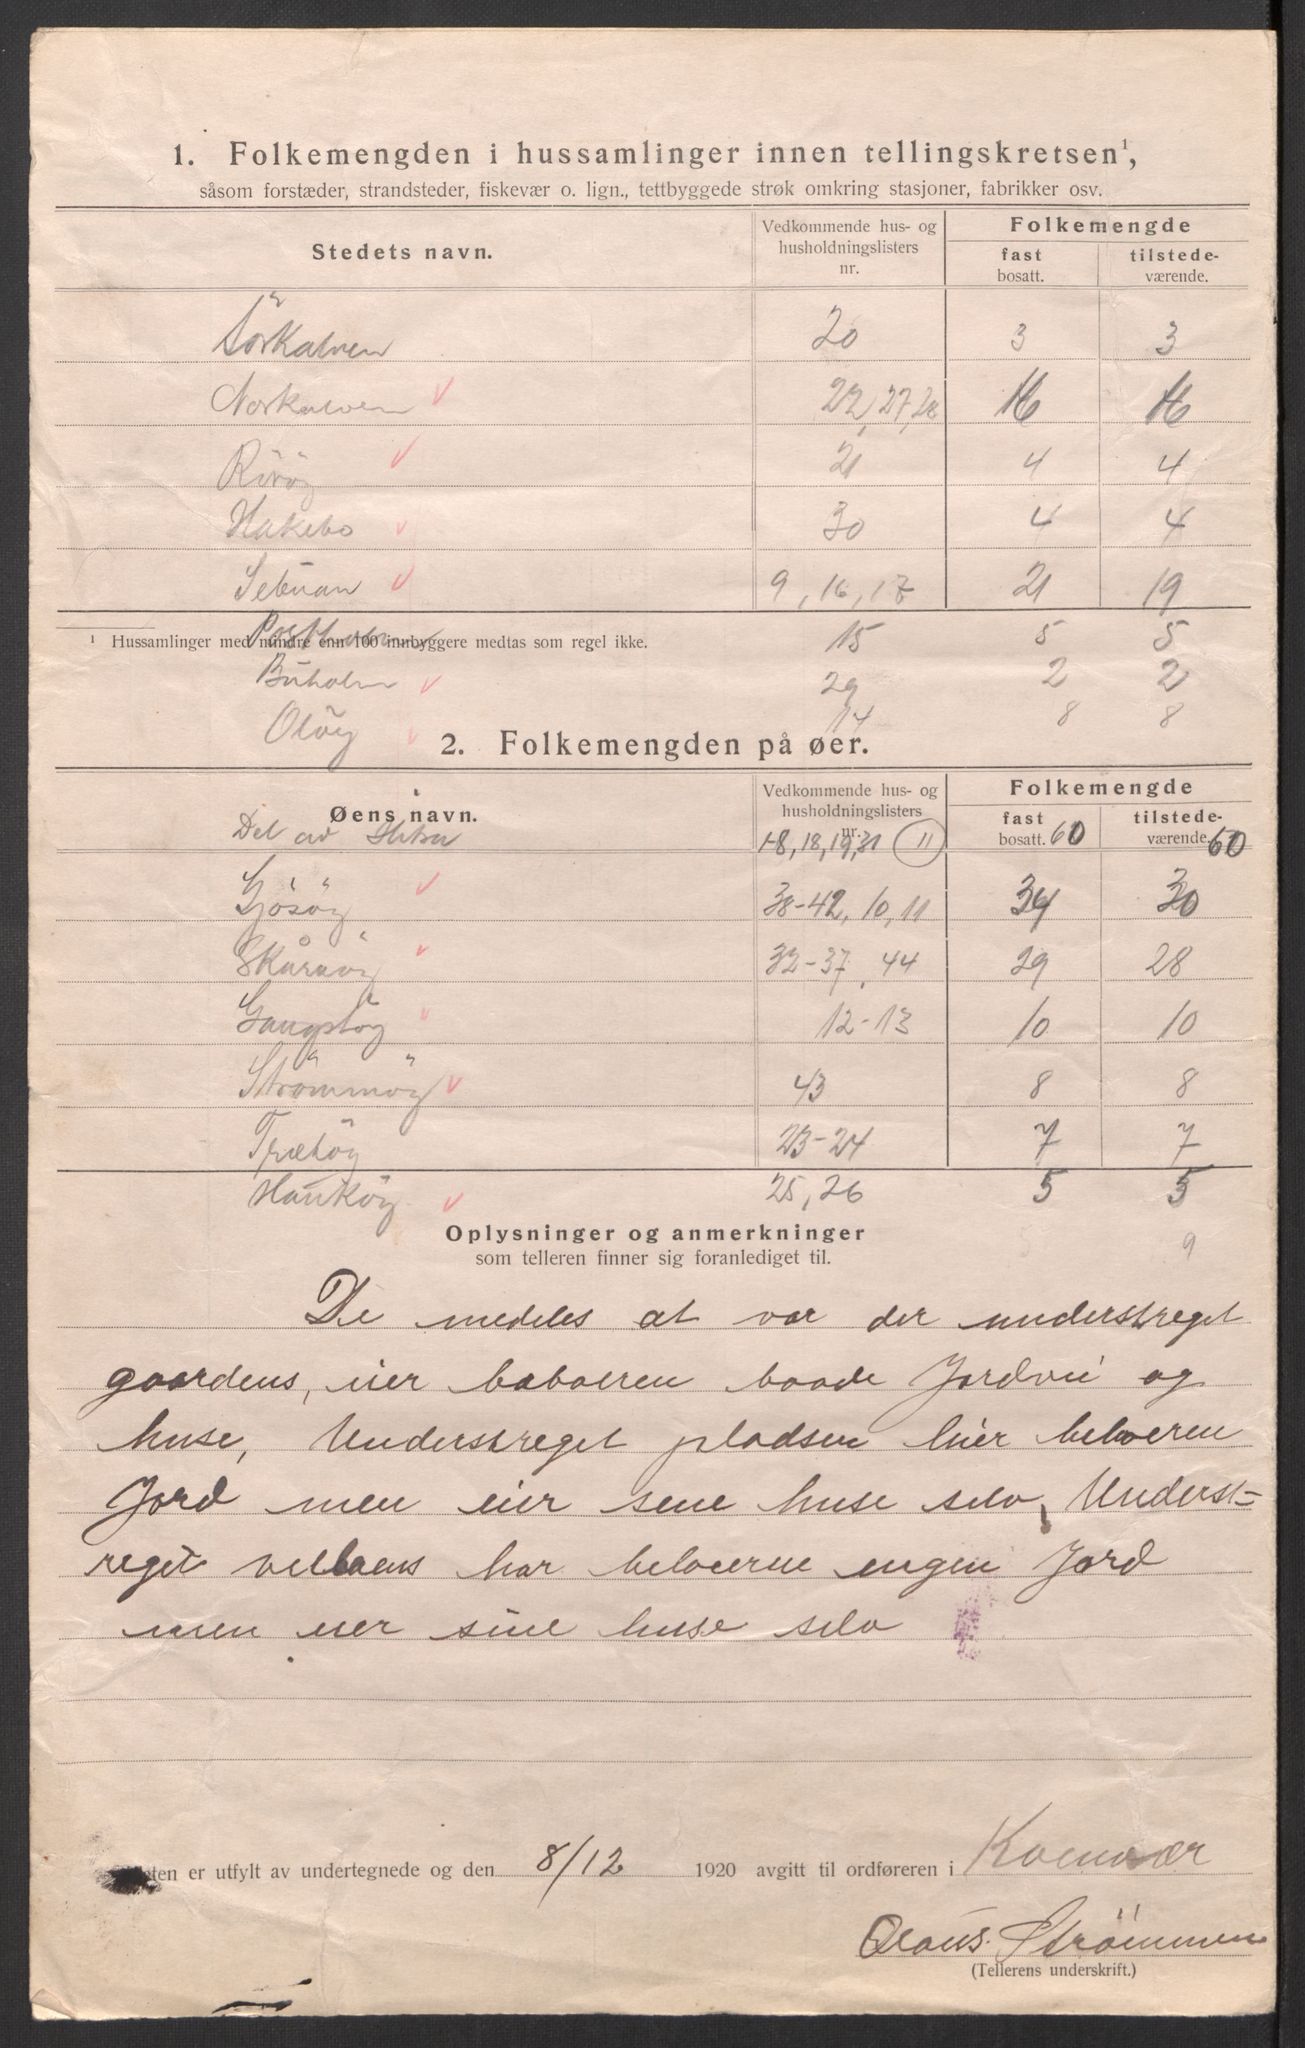 1. Folkemengden i hussamlinger innen tellingskretsen¹,
såsom forstæder, strandsteder, fiskevær o. lign., tettbyggede strøk omkring stasjoner, fabrikker osv.
Stedets navn. Vedkommende hus- og husholdningslisters nr. Folkemengde
fast bosatt. tilstede- værende.
Sörkalven 20 3 3
Norkalven 22, 27, 28 16 16
Röröy 21 4 4
Hakebo 30 4 4
9, 16, 17 21 19
¹ Hussamlinger med mindre enn 100 innbyggere medtas som regel ikke.
Postholmen 15 5 5
Buholm 29 2 2
Olöy 14 8 8
2. Folkemengden på øer.
Øens navn. Vedkommende hus- og husholdningslisters nr. Folkemengde
fast bosatt. tilstede- værende.
Del av Hitra 1-8, 18, 19, 31 (11) 60 60
Gjösöy 38-42, 10, 11 34 30
Skåraöy 32-37, 44 29 28
Gangstöy 12-13 10 10
Strömmöy 43 8 8
23-24 7 7
25, 26 5 5
Oplysninger og anmerkninger
9
som telleren finner sig foranlediget til.
De medeles at vor der understreget
gaardens, eier beboeren baade Jordvei og
huse, Understreget pladsen leier beboeren
Jord men eier sene huse selv, Underst=
reget har beboerne engen Jord
men eier sine huse selv
er utfylt av undertegnede og den 8/12 1920 avgitt til ordføreren i Kvenvær
Olaus Strömmen
(Tellerens underskrift.)